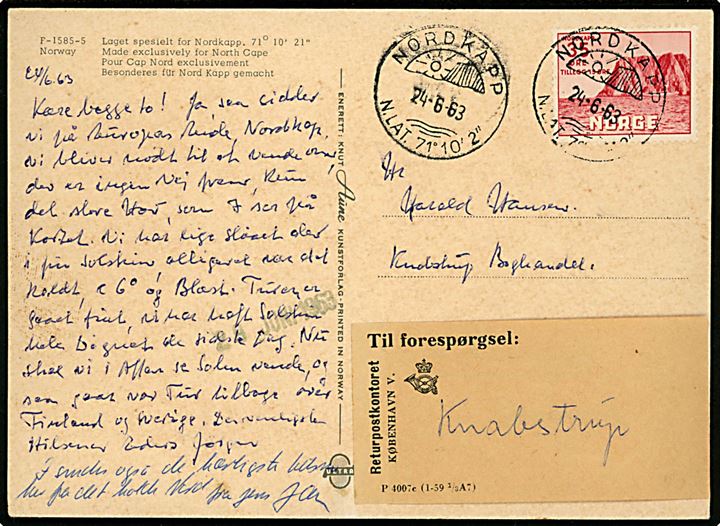 F-1585-5
Norway
Laget spesielt for Nordkapp, 71° 10' 21"
Made exclusively for North Cape
Pour Cap Nord exclusivement
Besonderes für Nord Kapp gemacht
24/6.63
Kære begge to! Ja saa sidder
vi på Europas Ende, Nordkap.
vi bliver nødt til at vende om,
der er ingen Vej frem, kun
det store Hav, som I ser på
Kortet. Vi har lige slaaet der
i fin Solskin alligevel var det
koldt, 6° og Blæst. Turen er
gaaet fint, vi har haft Solskin
hele Døgnet de sidste Dag. Nu
skal vi i Aften se Solen vende, og
saa gaar vor Tur tilbage over
Finland og Sverige. De venligste
Hilsener Jørgen
I sendes også de hjerteligste
her fra det kolde Nord fra
ENERETT: KNUT Aune KUNSTFORLAG - PRINTED IN NORWAY
ULTRA
JUNI 1963
NORDKAPP
24-6-63
N.LAT. 71° 10' 2"
NORDKAPP
24-6-63
N.LAT. 71° 10' 2"
35
ØRE
NORGE
Hr
Harald Hansen.
Knudstrup Boghandel.
Til forespørgsel:
Returpostkontoret
KØBENHAVN V.
Knabstrup
P 4007c (1-59 ½A7)